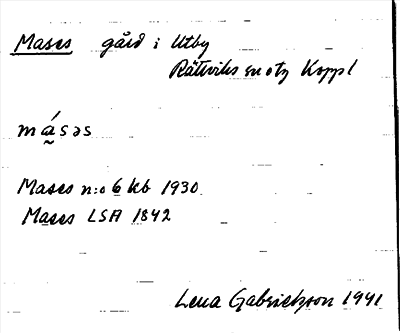 Mases gård i Utby
Rättviks sn otg Koppl
má̰səs
Mases n:o 6 kb 1930
Mases LSA 1842
Lena Gabrielsson 1941